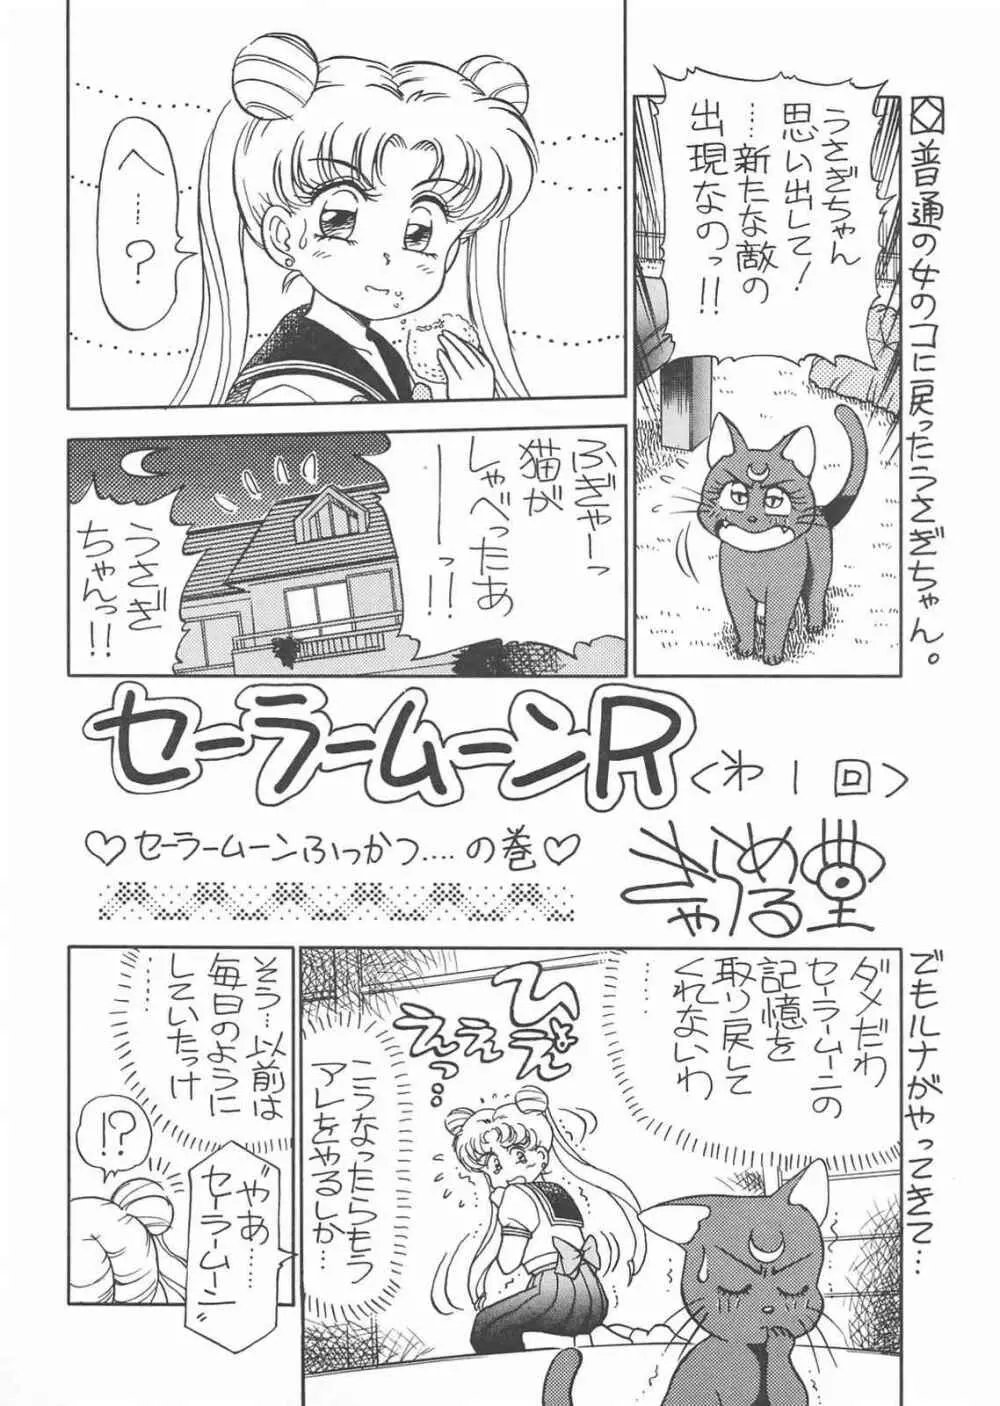 普通の女のコに戻ったうさぎちゃん。
うさぎちゃん
思い出して!
……新たな敵の
出現なのっ!!
へ…?
ふぎゃーっ
猫が
しゃべったあ
ーーっ!!
うさぎ
ちゃんっ!!
セーラームーンR
〈オ1回〉
♡セーラームーンふっかつ....の巻♡
きゃらめる堂
でもルナがやってきて…
ダメだわ
セーラームーンの
記憶を
取り戻して
くれないわ
ひょえ
ええ
えっ…
こうなったらもう
アレをやるしか…
そう…以前は
毎日のように
していたっけ
……
やあ…
セーラームーン
!?